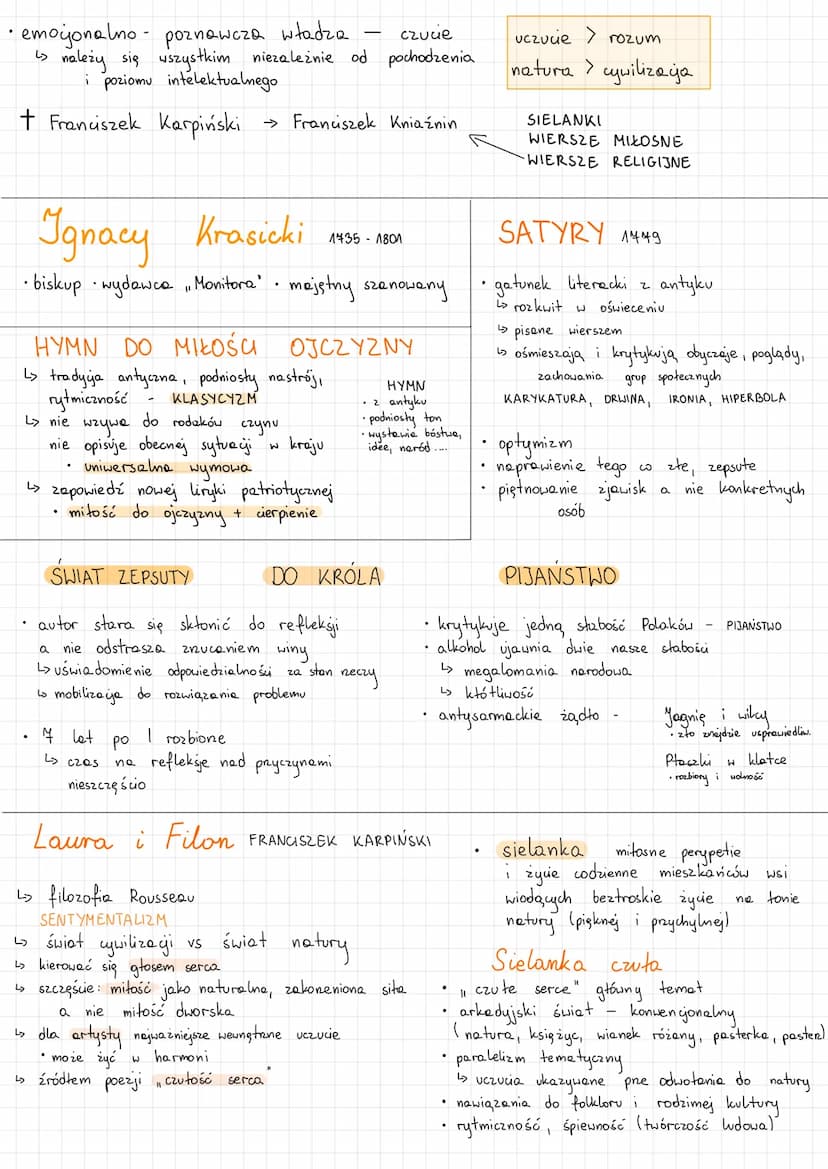 • emocjonalno - poznawcza władza — czucie
↳ należy się wszystkim niezależnie od pochodzenia
i poziomu intelektualnego
uczucie > rozum
natura > cywilizacja
† Franciszek Karpiński → Franciszek Kniaźnin
SIELANKI
WIERSZE MIŁOSNE
WIERSZE RELIGIJNE
Ignacy Krasicki 1735 - 1801
• biskup • wydawca „Monitora" • majętny szanowany
HYMN DO MIŁOŚCI OJCZYZNY
↳ tradycja antyczna, podniosły nastrój,
rytmiczność - KLASYCYZM
↳ nie wzywa do rodaków czynu
nie opisuje obecnej sytuacji w kraju
• uniwersalna wymowa
↳ zapowiedź nowej liryki patriotycznej
• miłość do ojczyzny + cierpienie
HYMN
• z antyku
• podniosły ton
• wysławia bóstwa,
idee, naród ....
SATYRY 1779
• gatunek literacki z antyku
↳ rozkwit w oświeceniu
↳ pisane wierszem
↳ ośmieszają i krytykują obyczaje, poglądy,
zachowania grup społecznych
KARYKATURA, DRWINA, IRONIA, HIPERBOLA
• optymizm
• naprawienie tego co złe, zepsute
• piętnowanie zjawisk a nie konkretnych
osób
ŚWIAT ZEPSUTY DO KRÓLA
• autor stara się skłonić do refleksji
a nie odstrasza zrzucaniem winy
↳ uświadomienie odpowiedzialności za stan rzeczy
↳ mobilizacja do rozwiązania problemu
• 7 lat po I rozbiorze
↳ czas na refleksje nad przyczynami
nieszczęścia
PIJAŃSTWO
• krytykuje jedną słabość Polaków - PIJAŃSTWO
• alkohol ujawnia dwie nasze słabości
↳ megalomania narodowa
↳ kłótliwość
• antysarmackie żądło -
Jagnię i wilcy
• zło znajdzie usprawiedliw.
Ptaszki w klatce
• rozbiory i wolność
Laura i Filon FRANCISZEK KARPIŃSKI
↳ filozofia Rousseau
SENTYMENTALIZM
↳ świat cywilizacji vs świat natury
↳ kierować się głosem serca
↳ szczęście: miłość jako naturalna, zakorzeniona siła
a nie miłość dworska
↳ dla artysty najważniejsze wewnętrzne uczucie
• może żyć w harmoni
↳ źródłem poezji „czułość serca"
• sielanka miłosne perypetie
i życie codzienne mieszkańców wsi
wiodących beztroskie życie na łonie
natury (pięknej i przychylnej)
Sielanka czuła
• „czułe serce" główny temat
• arkadyjski świat — konwencjonalny
(natura, księżyc, wianek różany, pasterka, pasterz)
• paralelizm tematyczny
↳ uczucia ukazywane prze odwołania do natury
• nawiązania do folkloru i rodzimej kultury
• rytmiczność, śpiewność (twórczość ludowa)